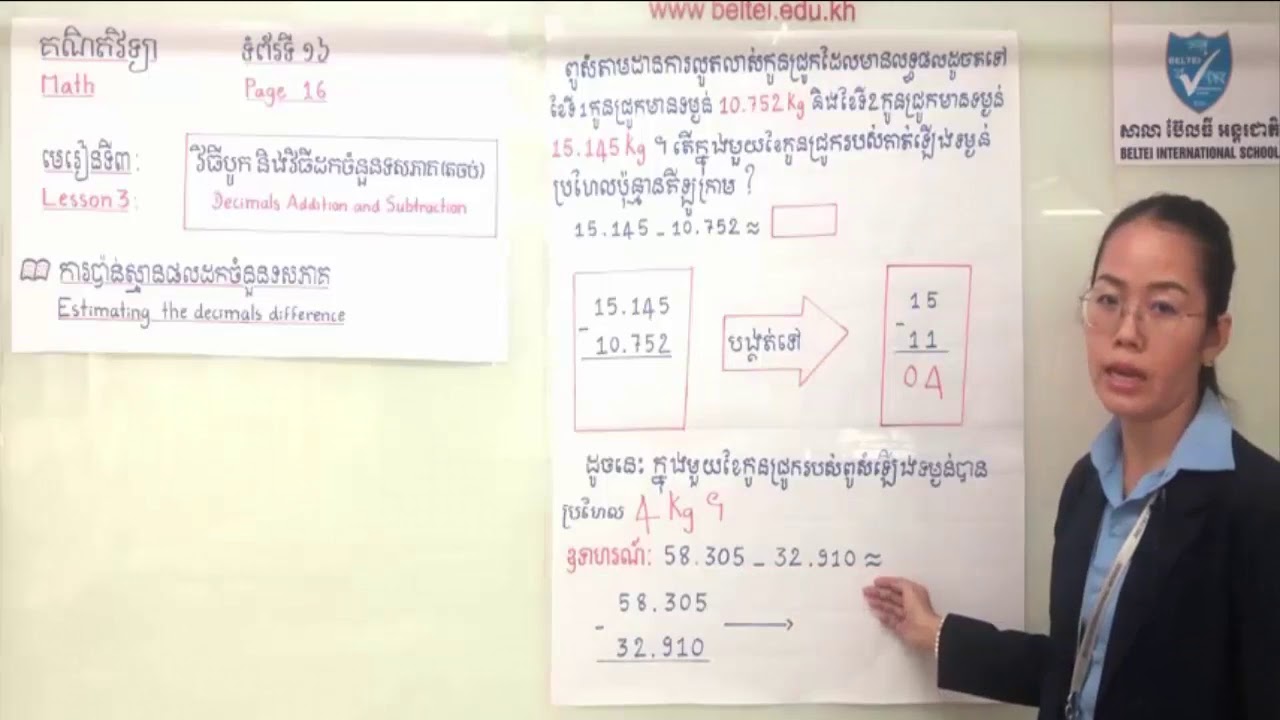 www.beltei.edu.kh
គណិតវិទ្យា
ទំព័រទី ១៦
Math
Page 16
មេរៀនទី៣:
វិធីបូក និងវិធីដកចំនួនទសភាគ(តចប់)
Lesson 3:
Decimals Addition and Subtraction
ការប៉ាន់ស្មានផលដកចំនួនទសភាគ
Estimating the decimals difference
ពូសំតាមដានការលូតលាស់កូនជ្រូកដែលមានលទ្ធផលដូចតទៅ
ខែទី1កូនជ្រូកមានទម្ងន់ 10.752 Kg និងខែទី2កូនជ្រូកមានទម្ងន់
15.145 Kg ។ តើក្នុងមួយខែកូនជ្រូករបស់គាត់ឡើងទម្ងន់
ប្រហែលប៉ុន្មានគីឡូក្រាម ?
15.145 - 10.752 ≈
15.145
-
10.752
បង្គត់ទៅ
15
-
11
04
ដូចនេះ ក្នុងមួយខែកូនជ្រូករបស់ពូសំឡើងទម្ងន់បាន
ប្រហែល 4 Kg ។
ឧទាហរណ៍: 58.305 - 32.910 ≈
58.305
-
32.910
BELTEI
សាលា ប៊ែលធី អន្តរជាតិ
BELTEI INTERNATIONAL SCHOOL